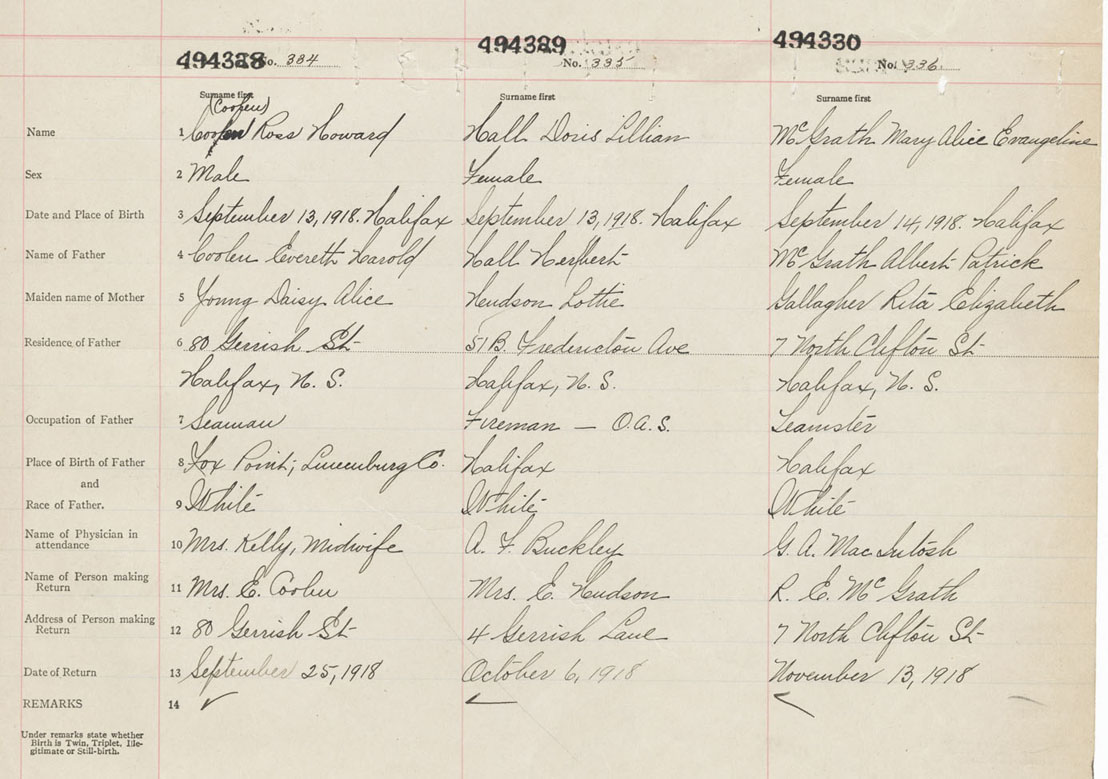 494328 No. 334 494329 No. 335 494330 No. 336
Surname first Surname first Surname first
(Coolen)
Name 1 Ross Howard Hall Doris Lillian McGrath Mary Alice Evangeline
Sex 2 Male Female Female
Date and Place of Birth 3 September 13, 1918. Halifax September 13, 1918. Halifax September 14, 1918. Halifax
Name of Father 4 Coolen Evereth Harold Hall Herbert McGrath Albert Patrick
Maiden name of Mother 5 Young Daisy Alice Hudson Lottie Gallagher Rita Elizabeth
Residence of Father 6 80 Gerrish St. 51 B. Fredericton Ave 7 North Clifton St.
Halifax, N. S. Halifax, N. S. Halifax, N. S.
Occupation of Father 7 Seaman Fireman — O.A.S. Teamster
Place of Birth of Father 8 Fox Point; Lunenburg Co. Halifax Halifax
and
Race of Father. 9 White White White
Name of Physician in
attendance 10 Mrs. Kelly, Midwife A. F. Buckley G. A. MacIntosh
Name of Person making
Return 11 Mrs. E. Coolen Mrs. E. Hudson R. E. McGrath
Address of Person making
Return 12 80 Gerrish St. 4 Gerrish Lane 7 North Clifton St.
Date of Return 13 September 25, 1918 October 6, 1918 November 13, 1918
REMARKS 14
Under remarks state whether
Birth is Twin, Triplet, Ille-
gitimate or Still-birth.